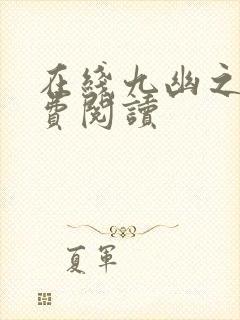 在綫九幽之
費閱讀
夏軍